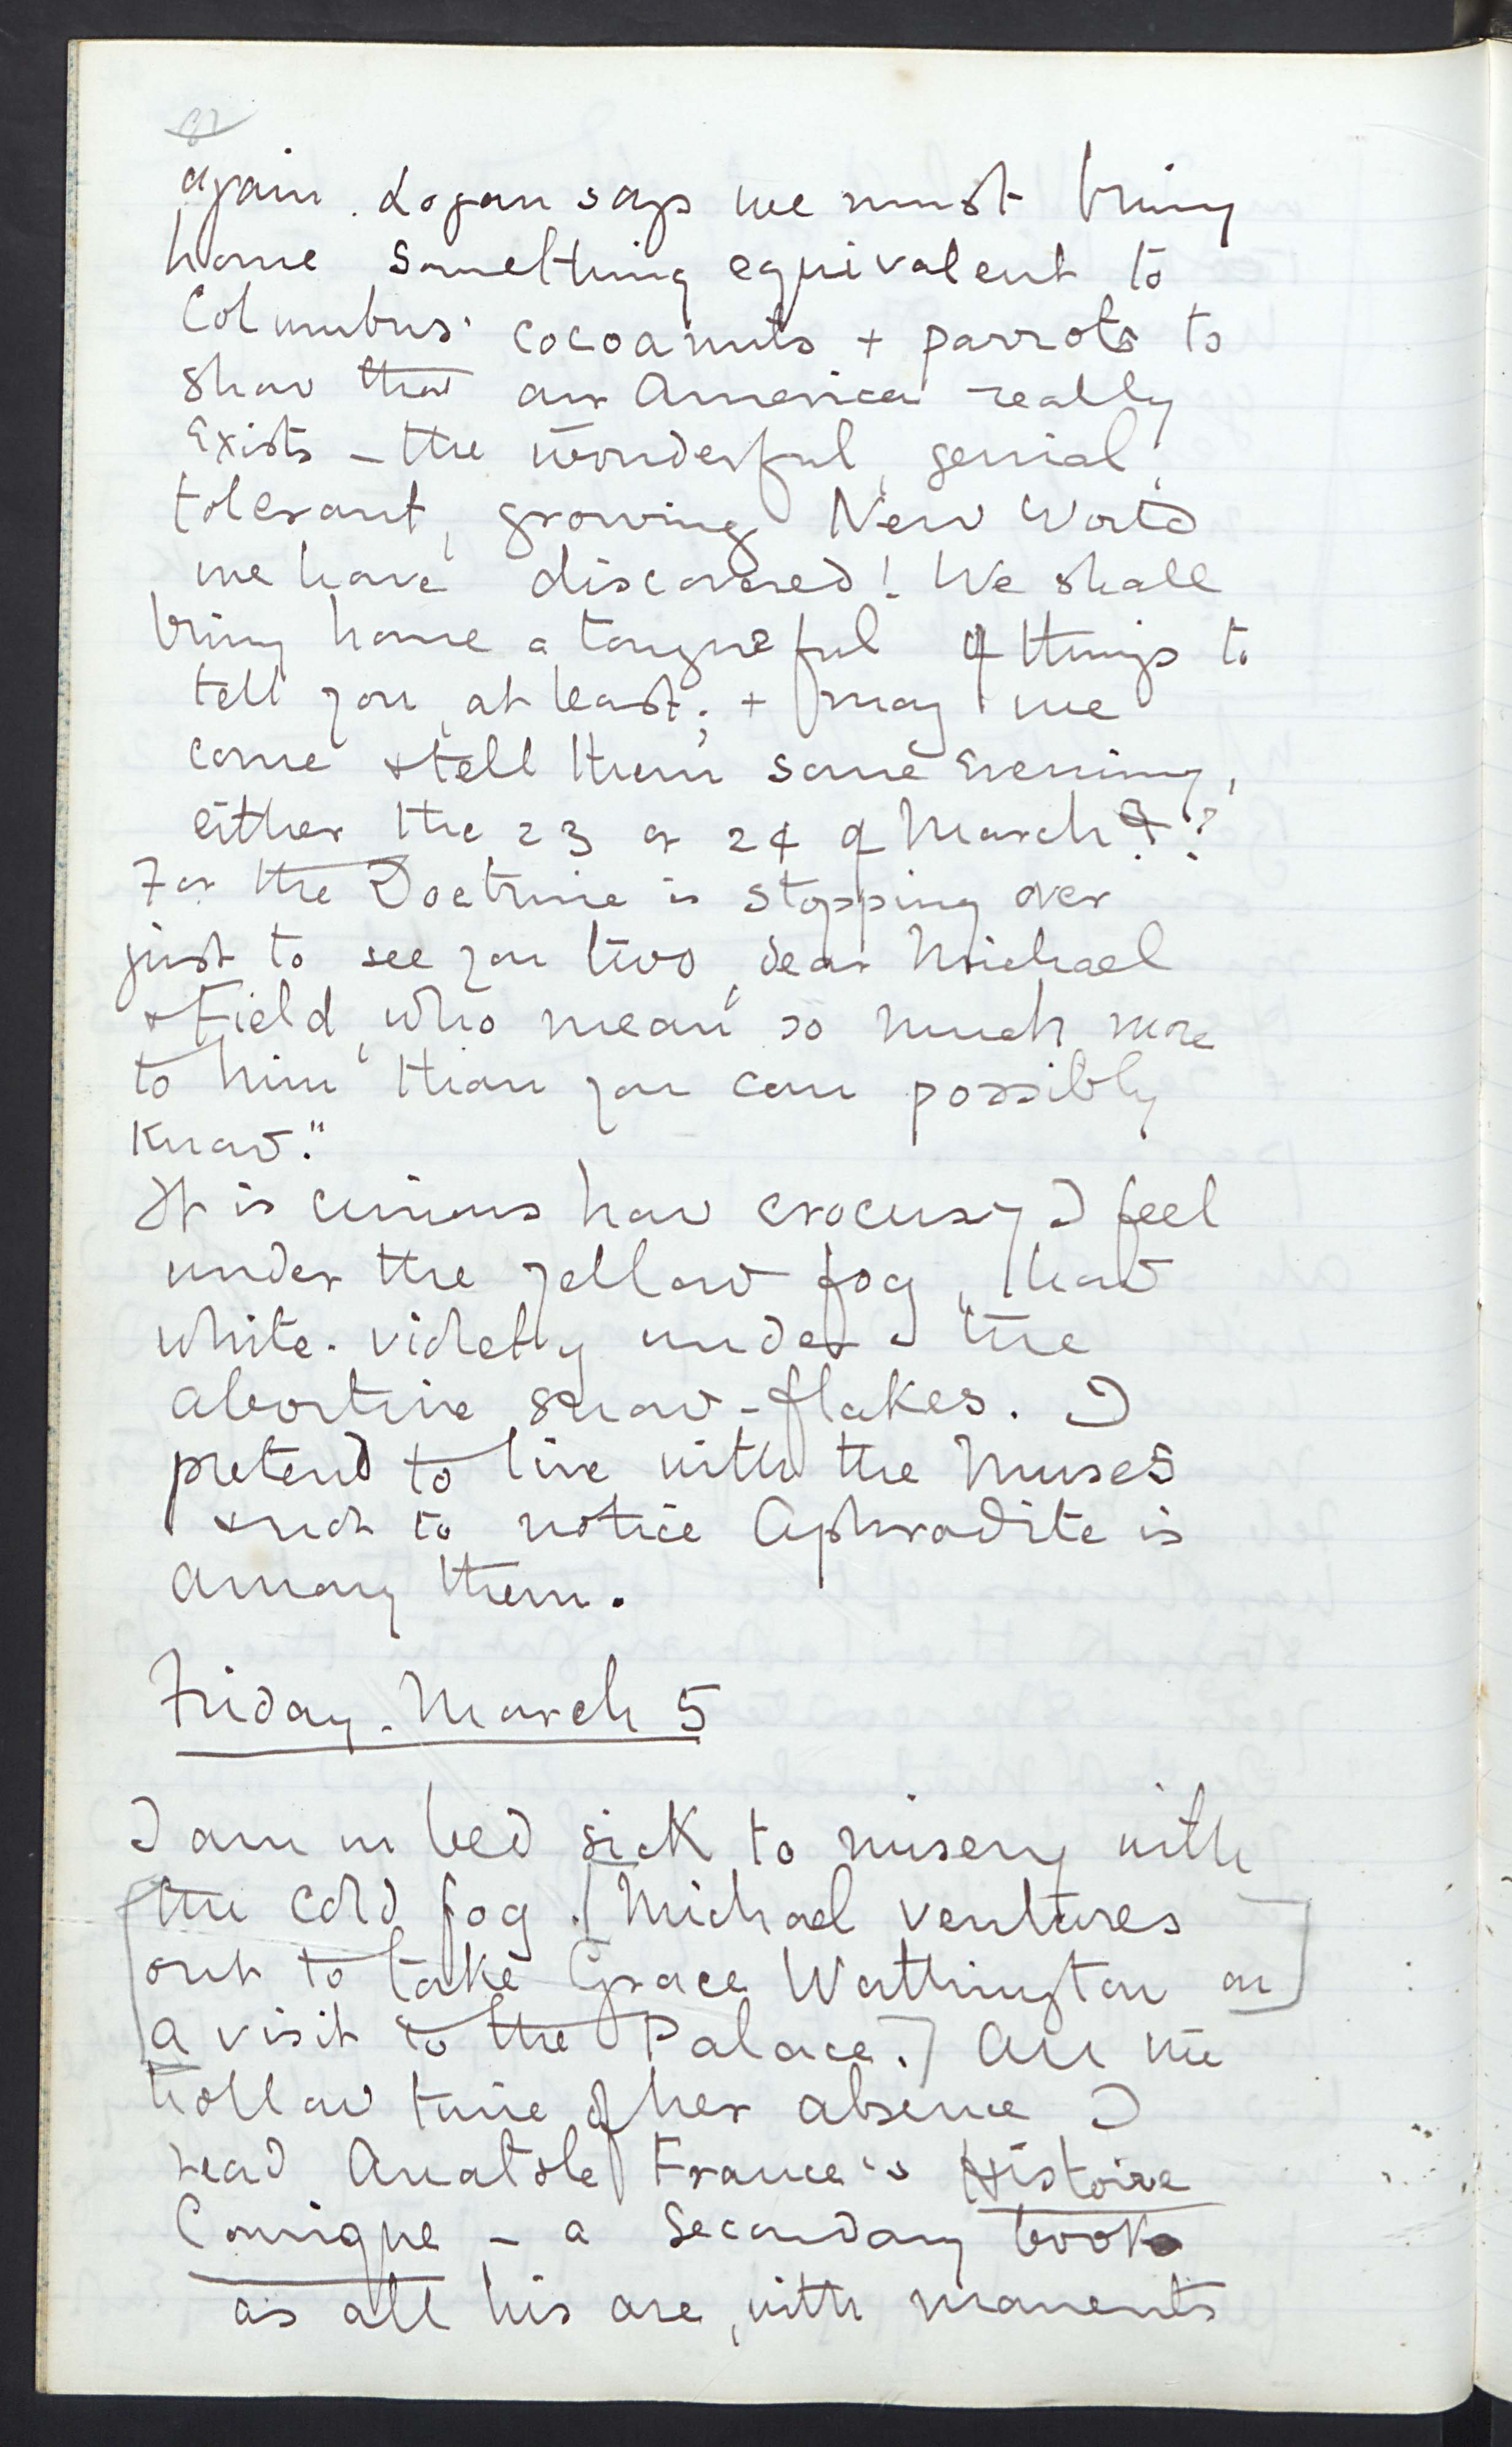 again. Logan says we must bring
home something equivalent to
Columbus' cocoanuts + parrots to
show that our America really
exists – the wonderful, genial,
tolerant, growing New World
we have discovered! We shall
bring home a tongueful of things to
tell you, at least; + may we
come & tell them some evening,
either the 23 or 24 of March?
For the Doctrine is stopping over
just to see you two, dear Michael
& Field, who mean so much more
to him than you can possibly
know."
It is curious how crocusy I feel
under the yellow fog, how
white-violety under the
abortive snow-flakes. I
pretend to live with the Muses
& not to notice Aphrodite is
among them.
Friday. March 5
I am in bed sick to misery with
the cold fog. [Michael ventures
out to take Grace Watthington on
a visit to the Palace.] All the
hollow time of her absence I
read Anatole France's Histoire
Comique – a secondary book
as all his are, with moments